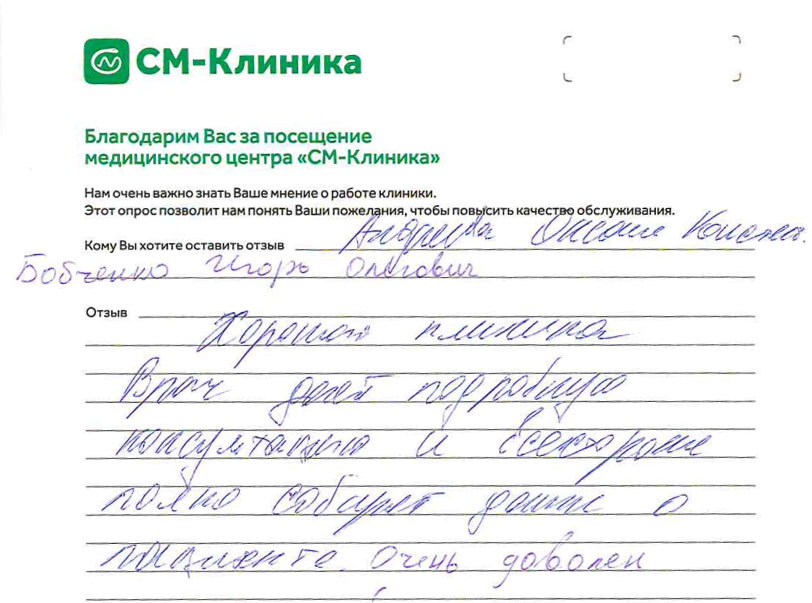 СМ-Клиника
Благодарим Вас за посещение
медицинского центра «СМ-Клиника»
Нам очень важно знать Ваше мнение о работе клиники.
Этот опрос позволит нам понять Ваши пожелания, чтобы повысить качество обслуживания.
Кому Вы хотите оставить отзыв Андреева Оксане
Бобченко Игорь Олегович
Отзыв
Хорошая клиника
Врач дает подробную
консультацию и всесторонне
полно собирает данные о
пациенте. Очень доволен